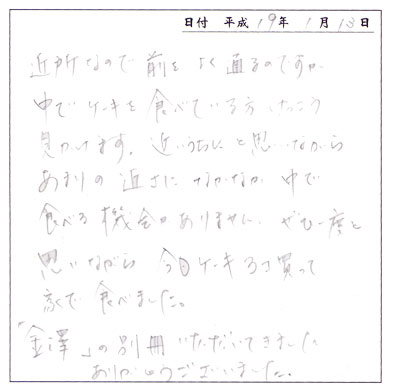 日付 平成 19年 1月 13日
近所なので前をよく通るのですが
中でケーキを食べている方けっこう
見かけます。近いうちにと思いながら
あまりの近さになかなか中で
食べる機会がありません。ぜひ一度と
思いながら 今日ケーキ3コ買って
家で食べました。
「金澤」の別冊いただいてきました
ありがとうございました。